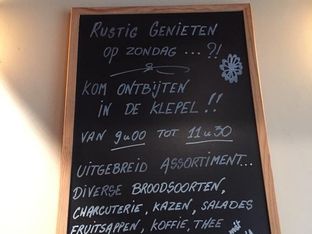 RUSTIG GENIETEN
OP ZONDAG ...?!
KOM ONTBIJTEN
IN DE KLEPEL !!
VAN 9u00 TOT 11u30
UITGEBREID ASSORTIMENT...
DIVERSE BROODSOORTEN,
CHARCUTERIE, KAZEN, SALADES
FRUITSAPPEN, KOFFIE, THEE